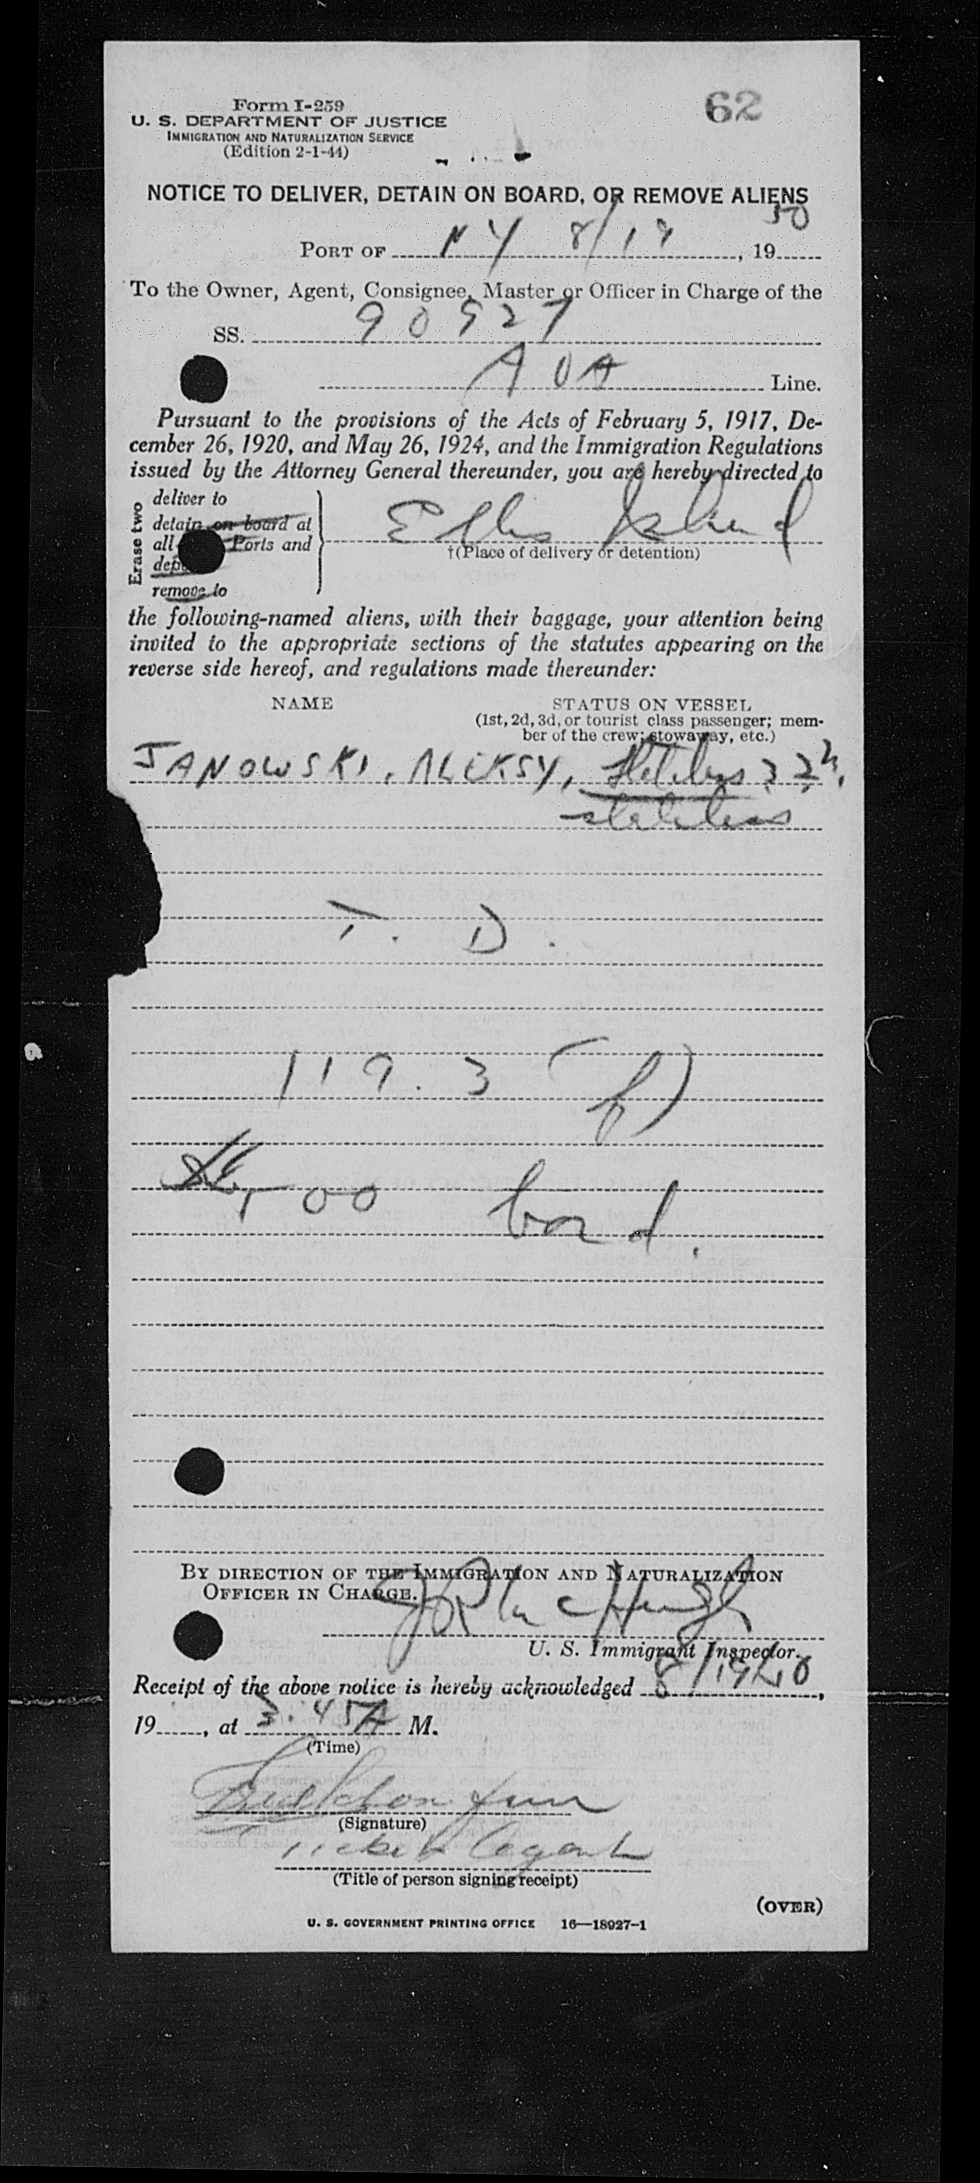 62
Form I-259
U. S. DEPARTMENT OF JUSTICE
IMMIGRATION AND NATURALIZATION SERVICE
(Edition 2-1-44)
NOTICE TO DELIVER, DETAIN ON BOARD, OR REMOVE ALIENS
PORT OF NY 8/19, 1950
To the Owner, Agent, Consignee, Master or Officer in Charge of the
SS. 90927
AOA Line.
Pursuant to the provisions of the Acts of February 5, 1917, De-
cember 26, 1920, and May 26, 1924, and the Immigration Regulations
issued by the Attorney General thereunder, you are hereby directed to
Erase two
deliver to
detain on board at
all Ports and
remove to
Ellis Island
†(Place of delivery or detention)
the following-named aliens, with their baggage, your attention being
invited to the appropriate sections of the statutes appearing on the
reverse side hereof, and regulations made thereunder:
NAME STATUS ON VESSEL
(1st, 2d, 3d, or tourist class passenger; mem-
ber of the crew; stowaway, etc.)
JANOWSKI, ALEKSY,
stateless
T. D.
119.3 (f)
500 bond.
BY DIRECTION OF THE IMMIGRATION AND NATURALIZATION
OFFICER IN CHARGE.
U. S. Immigrant Inspector.
Receipt of the above notice is hereby acknowledged 8/19/50,
19......, at 3.45 A M.
(Time)
(Signature)
Ticket Agent
(Title of person signing receipt)
(OVER)
U. S. GOVERNMENT PRINTING OFFICE 16—18927-1